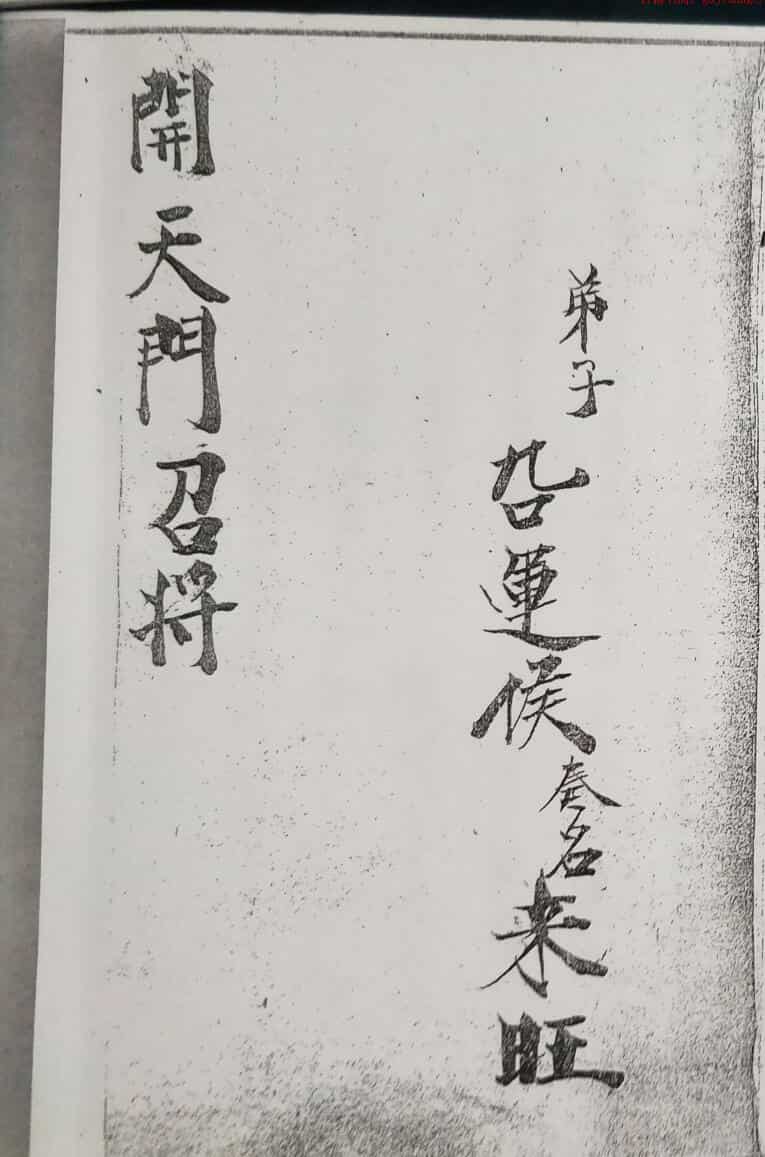 弟子叴運侯奏名来旺
開天門召将